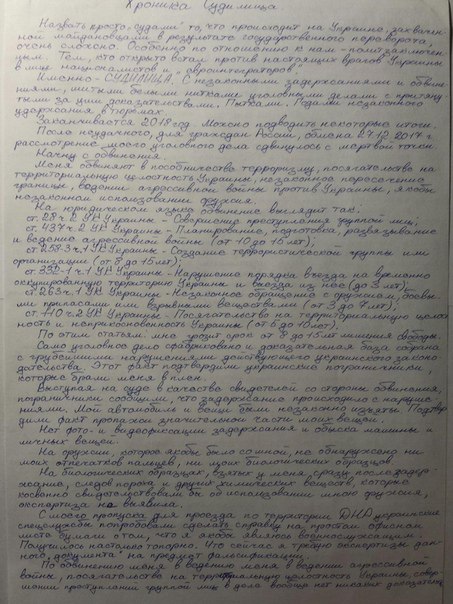 Хроника Судилища
Назвать просто „судами" то, что происходит на Украине, захвачен-
ной майдановцами в результате государственного переворота,
очень сложно. Особенно по отношению к нам - политзаключен-
ным. Тем, кто открыто встал против настоящих врагов Украины
в лице нацикоамитов и „евроинтеграторов".
Именно - СУДИЛИЩА. С незаконными задержаниями и обвине-
ниями, шитыми белыми нитками уголовными делами с притяну-
тыми за уши „доказательствами". Пытками. Годами незаконного
удержания в тюрьмах.
Заканчивается 2018 год. Можно подводить некоторые итоги.
После неудачного, для граждан России, обмена 27.12.2017 г.
рассмотрение моего уголовного дела сдвинулось с мертвой точки.
Начну с обвинения.
Меня обвиняют в пособничестве терроризму, посягательстве на
территориальную целостность Украины, незаконное пересечение
границы, ведении агрессивной войны против Украины, якобы
незаконном использовании оружия.
На юридическом языке обвинение выглядит так:
ст. 28 ч. 2 УК Украины - Совершение преступления группой лиц;
ст. 437 ч. 2 УК Украины - Планирование, подготовка, развязывание
и ведение агрессивной войны (от 10 до 15 лет);
ст. 258-3 ч. 1 УК Украины - Создание террористической группы или
организации (от 8 до 15 лет);
ст. 332-1 ч. 1 УК Украины - Нарушение порядка въезда на временно
оккупированную территорию Украины и выезда из нее (до 3 лет);
ст. 263 ч. 1 УК Украины - Незаконное обращение с оружием, боевы-
ми припасами или взрывными веществами (от 3 до 7 лет);
ст. 110 ч. 2 УК Украины - Посягательство на территориальную целос-
ность и неприкосновенность Украины (от 5 до 10 лет).
По этим статьям мне грозит срок от 8 до 15 лет лишения свободы.
Само уголовное дело сфабриковано и доказательная база собрана
с грубейшими нарушениями действующего украинского законо-
дательства. Этот факт подтвердили украинские пограничники,
которые брали меня в плен.
Выступая на суде в качестве свидетелей со стороны обвинения,
пограничники сообщили, что задержание происходило с наруше-
ниями. Мой автомобиль и вещи были незаконно изъяты. Подтвер-
дили факт пропажи значительной части моих вещей.
Нет фото- и видеофиксации задержания и обыска машины и
личных вещей.
На оружии, которое якобы было со мной, не обнаружено ни
моих отпечатков пальцев, ни моих биологических образцов.
На биологических образцах, взятых у меня, сразу после задер-
жания, следов пороха и других химических веществ, которые
косвенно свидетельствовали бы об использовании мною оружия,
экспертиза не выявила.
С моего пропуска для проезда по территории ДНР, украинские
спецслужбы попробовали сделать справку на простом офисном
листе бумаги о том, что я якобы являюсь военнослужащим.
Получилось настолько топорно, что сейчас я требую экспертизы дан-
ного „документа" на предмет фальсификации.
По обвинению меня в ведении меня в ведении агрессивной
войны, посягательстве на территориальную целостность Украины, совер-
шении преступления группой лиц в деле вообще нет никаких доказательств